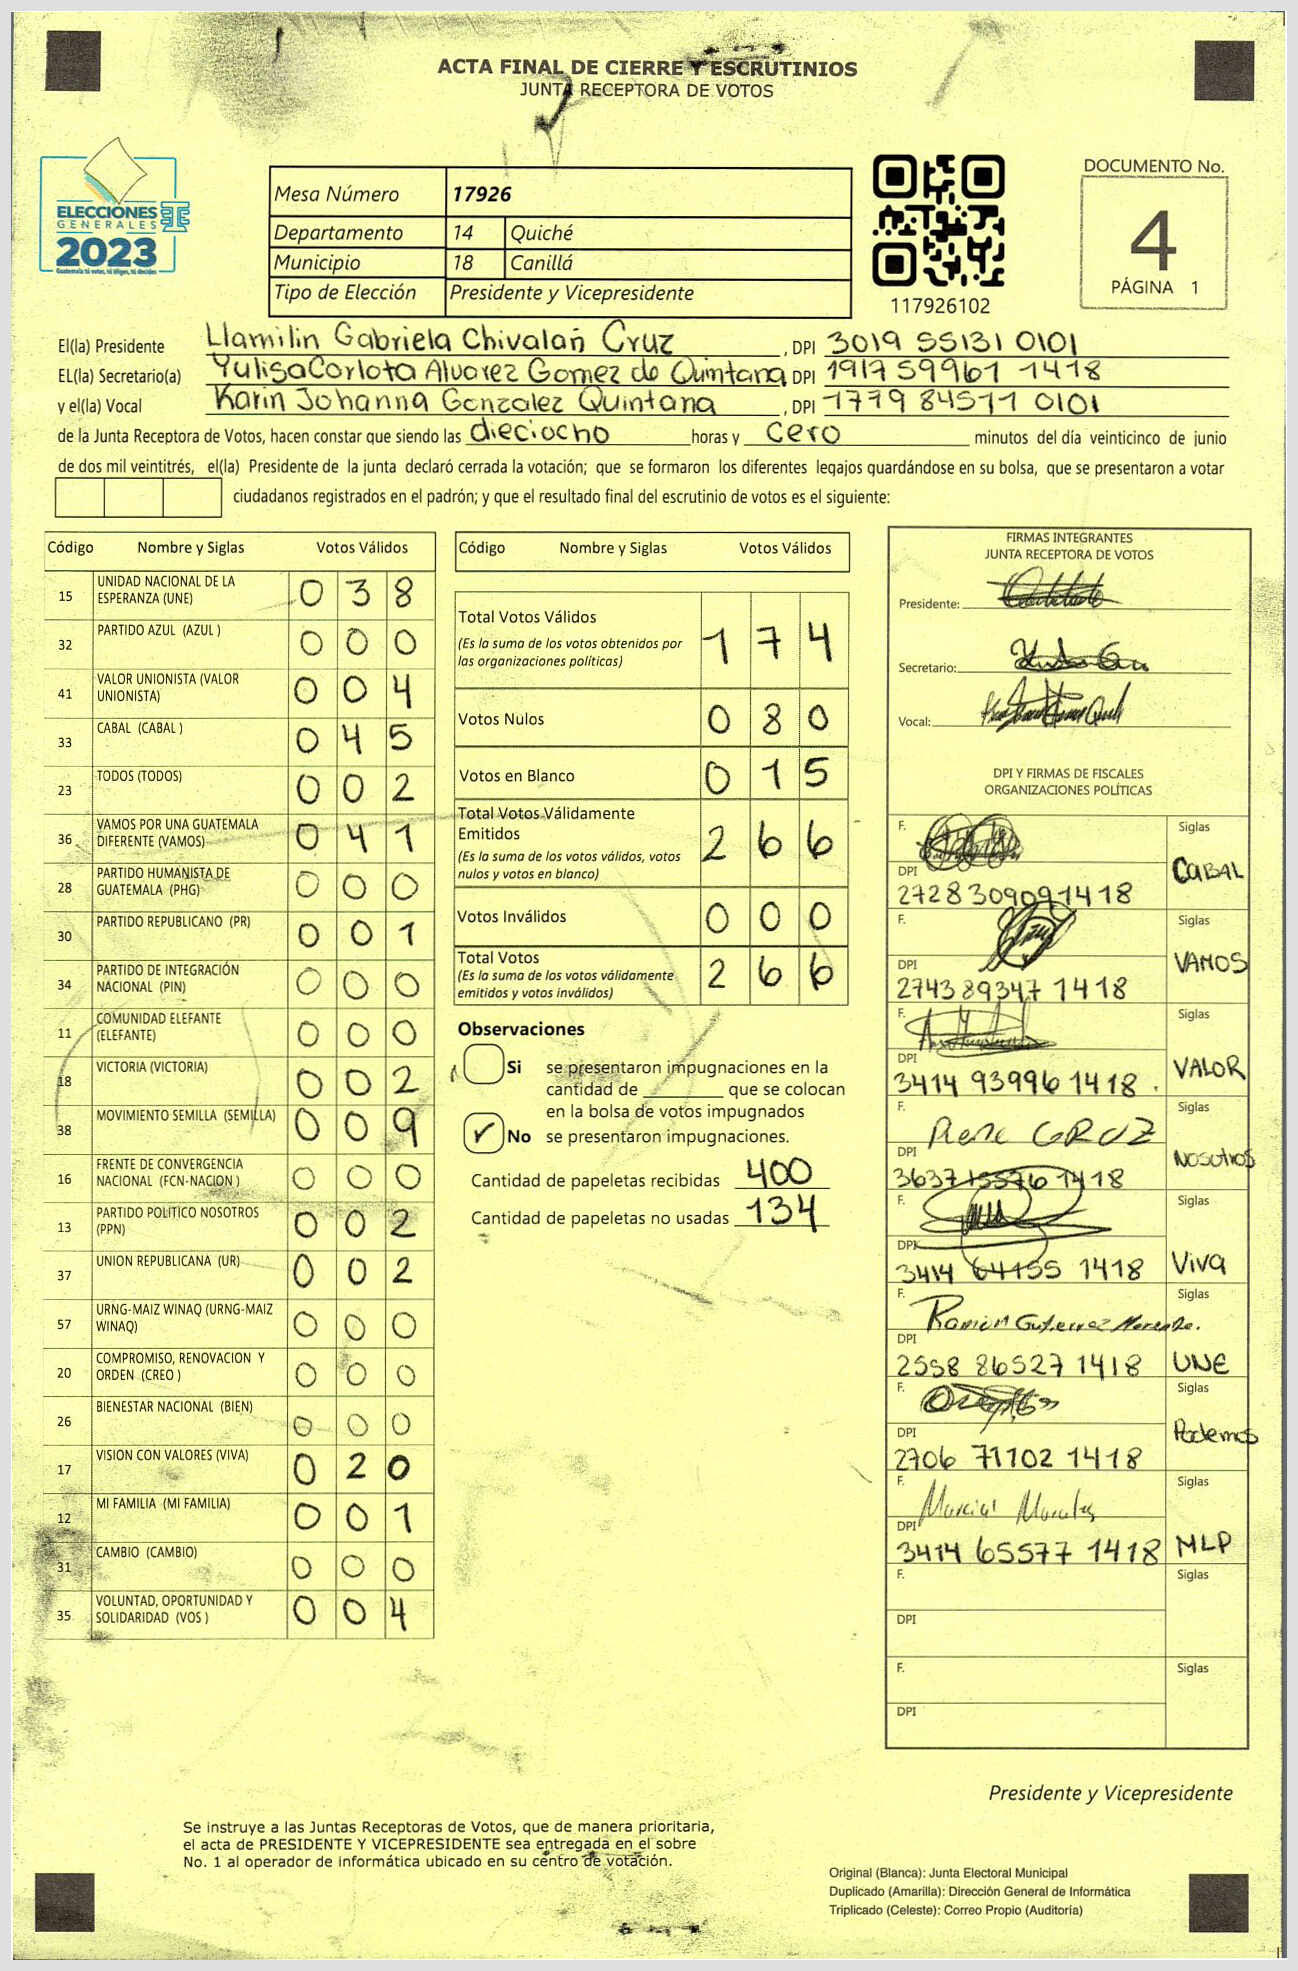 ACTA FINAL DE CIERRE Y ESCRUTINIOS
JUNTA RECEPTORA DE VOTOS
ELECCIONES
GENERALES
2023
Guatemala tú votas, tú eliges, tú decides
Mesa Número 17926
Departamento 14 Quiché
Municipio 18 Canillá
Tipo de Elección Presidente y Vicepresidente
117926102
DOCUMENTO No.
4
PÁGINA 1
El(la) Presidente Llamilin Gabriela Chivalan Cruz, DPI 3019 55131 0101
EL(la) Secretario(a) Yulisa Carlota Alvarez Gomez de Quintana DPI 1917 59961 1418
y el(la) Vocal Karin Johanna Gonzalez Quintana, DPI 1779 84511 0101
de la Junta Receptora de Votos, hacen constar que siendo las dieciocho horas y cero minutos del día veinticinco de junio
de dos mil veintitrés, el(la) Presidente de la junta declaró cerrada la votación; que se formaron los diferentes legajos guardándose en su bolsa, que se presentaron a votar
ciudadanos registrados en el padrón; y que el resultado final del escrutinio de votos es el siguiente:
Código Nombre y Siglas Votos Válidos
15 UNIDAD NACIONAL DE LA ESPERANZA (UNE) 0 3 8
32 PARTIDO AZUL (AZUL ) 0 0 0
41 VALOR UNIONISTA (VALOR UNIONISTA) 0 0 4
33 CABAL (CABAL ) 0 4 5
23 TODOS (TODOS) 0 0 2
36 VAMOS POR UNA GUATEMALA DIFERENTE (VAMOS) 0 4 1
28 PARTIDO HUMANISTA DE GUATEMALA (PHG) 0 0 0
30 PARTIDO REPUBLICANO (PR) 0 0 1
34 PARTIDO DE INTEGRACIÓN NACIONAL (PIN) 0 0 0
11 COMUNIDAD ELEFANTE (ELEFANTE) 0 0 0
18 VICTORIA (VICTORIA) 0 0 2
38 MOVIMIENTO SEMILLA (SEMILLA) 0 0 9
16 FRENTE DE CONVERGENCIA NACIONAL (FCN-NACION ) 0 0 0
13 PARTIDO POLITICO NOSOTROS (PPN) 0 0 2
37 UNION REPUBLICANA (UR) 0 0 2
57 URNG-MAIZ WINAQ (URNG-MAIZ WINAQ) 0 0 0
20 COMPROMISO, RENOVACION Y ORDEN (CREO ) 0 0 0
26 BIENESTAR NACIONAL (BIEN) 0 0 0
17 VISION CON VALORES (VIVA) 0 2 0
12 MI FAMILIA (MI FAMILIA) 0 0 1
31 CAMBIO (CAMBIO) 0 0 0
35 VOLUNTAD, OPORTUNIDAD Y SOLIDARIDAD (VOS ) 0 0 4
Código Nombre y Siglas Votos Válidos
Total Votos Válidos 1 7 4
(Es la suma de los votos obtenidos por
las organizaciones politicas)
Votos Nulos 0 8 0
Votos en Blanco 0 1 5
Total Votos Válidamente
Emitidos 2 6 6
(Es la suma de los votos válidos, votos
nulos y votos en blanco)
Votos Inválidos 0 0 0
Total Votos 2 6 6
(Es la suma de los votos válidamente
emitidos y votos inválidos)
Observaciones
Si se presentaron impugnaciones en la
cantidad de que se colocan
en la bolsa de votos impugnados
✓ No se presentaron impugnaciones.
Cantidad de papeletas recibidas 400
Cantidad de papeletas no usadas 134
FIRMAS INTEGRANTES
JUNTA RECEPTORA DE VOTOS
Presidente:
Secretario:
Vocal:
DPI Y FIRMAS DE FISCALES
ORGANIZACIONES POLÍTICAS
F. Siglas
CABAL
DPI
2728 30909 1418
F. Siglas
VAMOS
DPI
2743 89347 1418
F. Siglas
VALOR
DPI
3414 93996 1418.
F. Rene CRUZ Siglas
NOSOTROS
DPI
3637 15576 1418
F. Siglas
Viva
DPI
3414 64155 1418
F. Ramón Gutierrez Siglas
UNE
DPI
2558 86527 1418
F. Siglas
Podemos
DPI
2706 71102 1418
F. Marcial Morales Siglas
MLP
DPI
3414 65577 1418
F. Siglas
DPI
F. Siglas
DPI
Presidente y Vicepresidente
Se instruye a las Juntas Receptoras de Votos, que de manera prioritaria,
el acta de PRESIDENTE Y VICEPRESIDENTE sea entregada en el sobre
No. 1 al operador de informática ubicado en su centro de votación.
Original (Blanca): Junta Electoral Municipal
Duplicado (Amarilla): Dirección General de Informática
Triplicado (Celeste): Correo Propio (Auditoría)